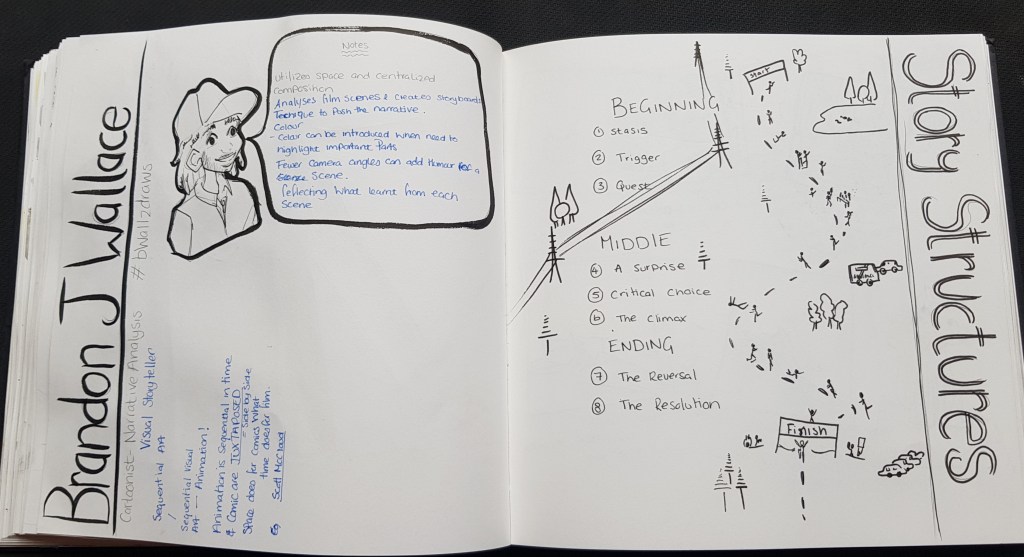 Brandon J Wallace
Cartoonist - Narrative Analysis # bwallzdraws
Visual Storyteller
Sequential Art
/
Sequential visual
Art — Animation!
Animation is Sequential in time
& Comic are JUXTAPOSED
= Side by Side
Space does for Comics what
time does for film.
Scott McCloud
Notes
Utilizes space and centralized
composition
Analyses film scenes & creates storyboards
Technique to Push the narrative.
Colour
- Colour can be introduced when need to
highlight important Parts
Fewer Camera angles can add Humour for a
Scene.
Reflecting what learnt from each
Scene
BEGINNING
① Stasis
② Trigger
③ Quest
MIDDLE
④ A Surprise
⑤ Critical Choice
⑥ The Climax
ENDING
⑦ The Reversal
⑧ The Resolution
Start
Finish
Story Structures